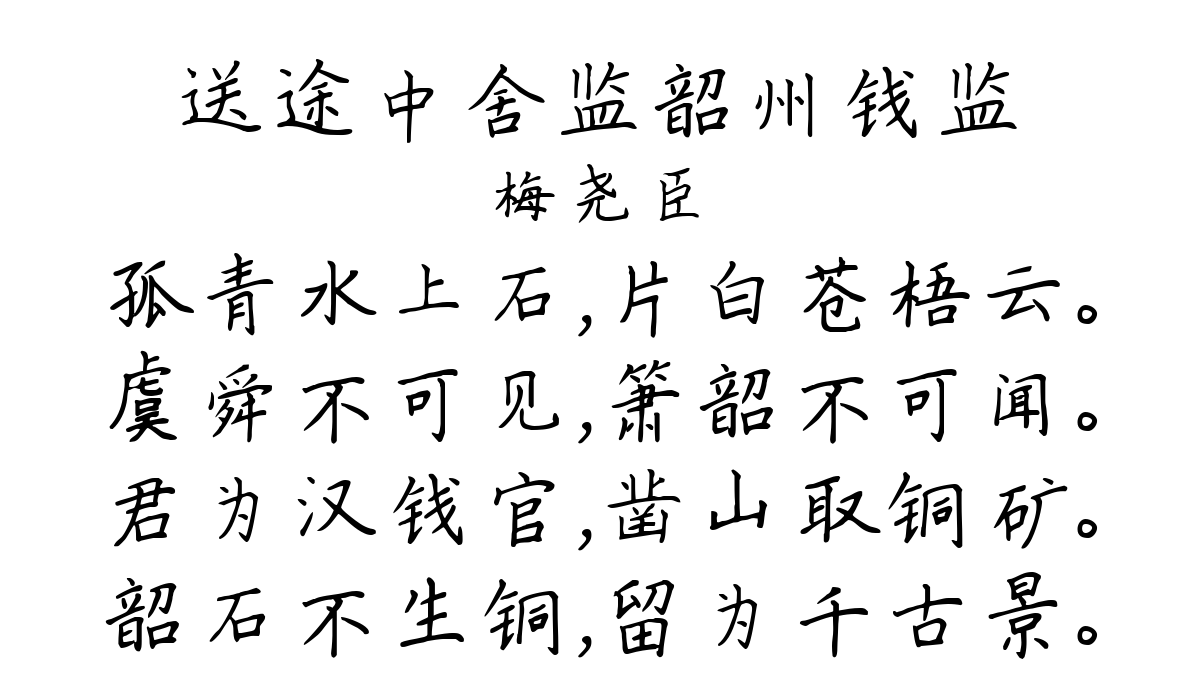 送途中舍监韶州钱监
梅尧臣
孤青水上石,片白苍梧云。
虞舜不可见,箫韶不可闻。
君为汉钱官,凿山取铜矿。
韶石不生铜,留为千古景。